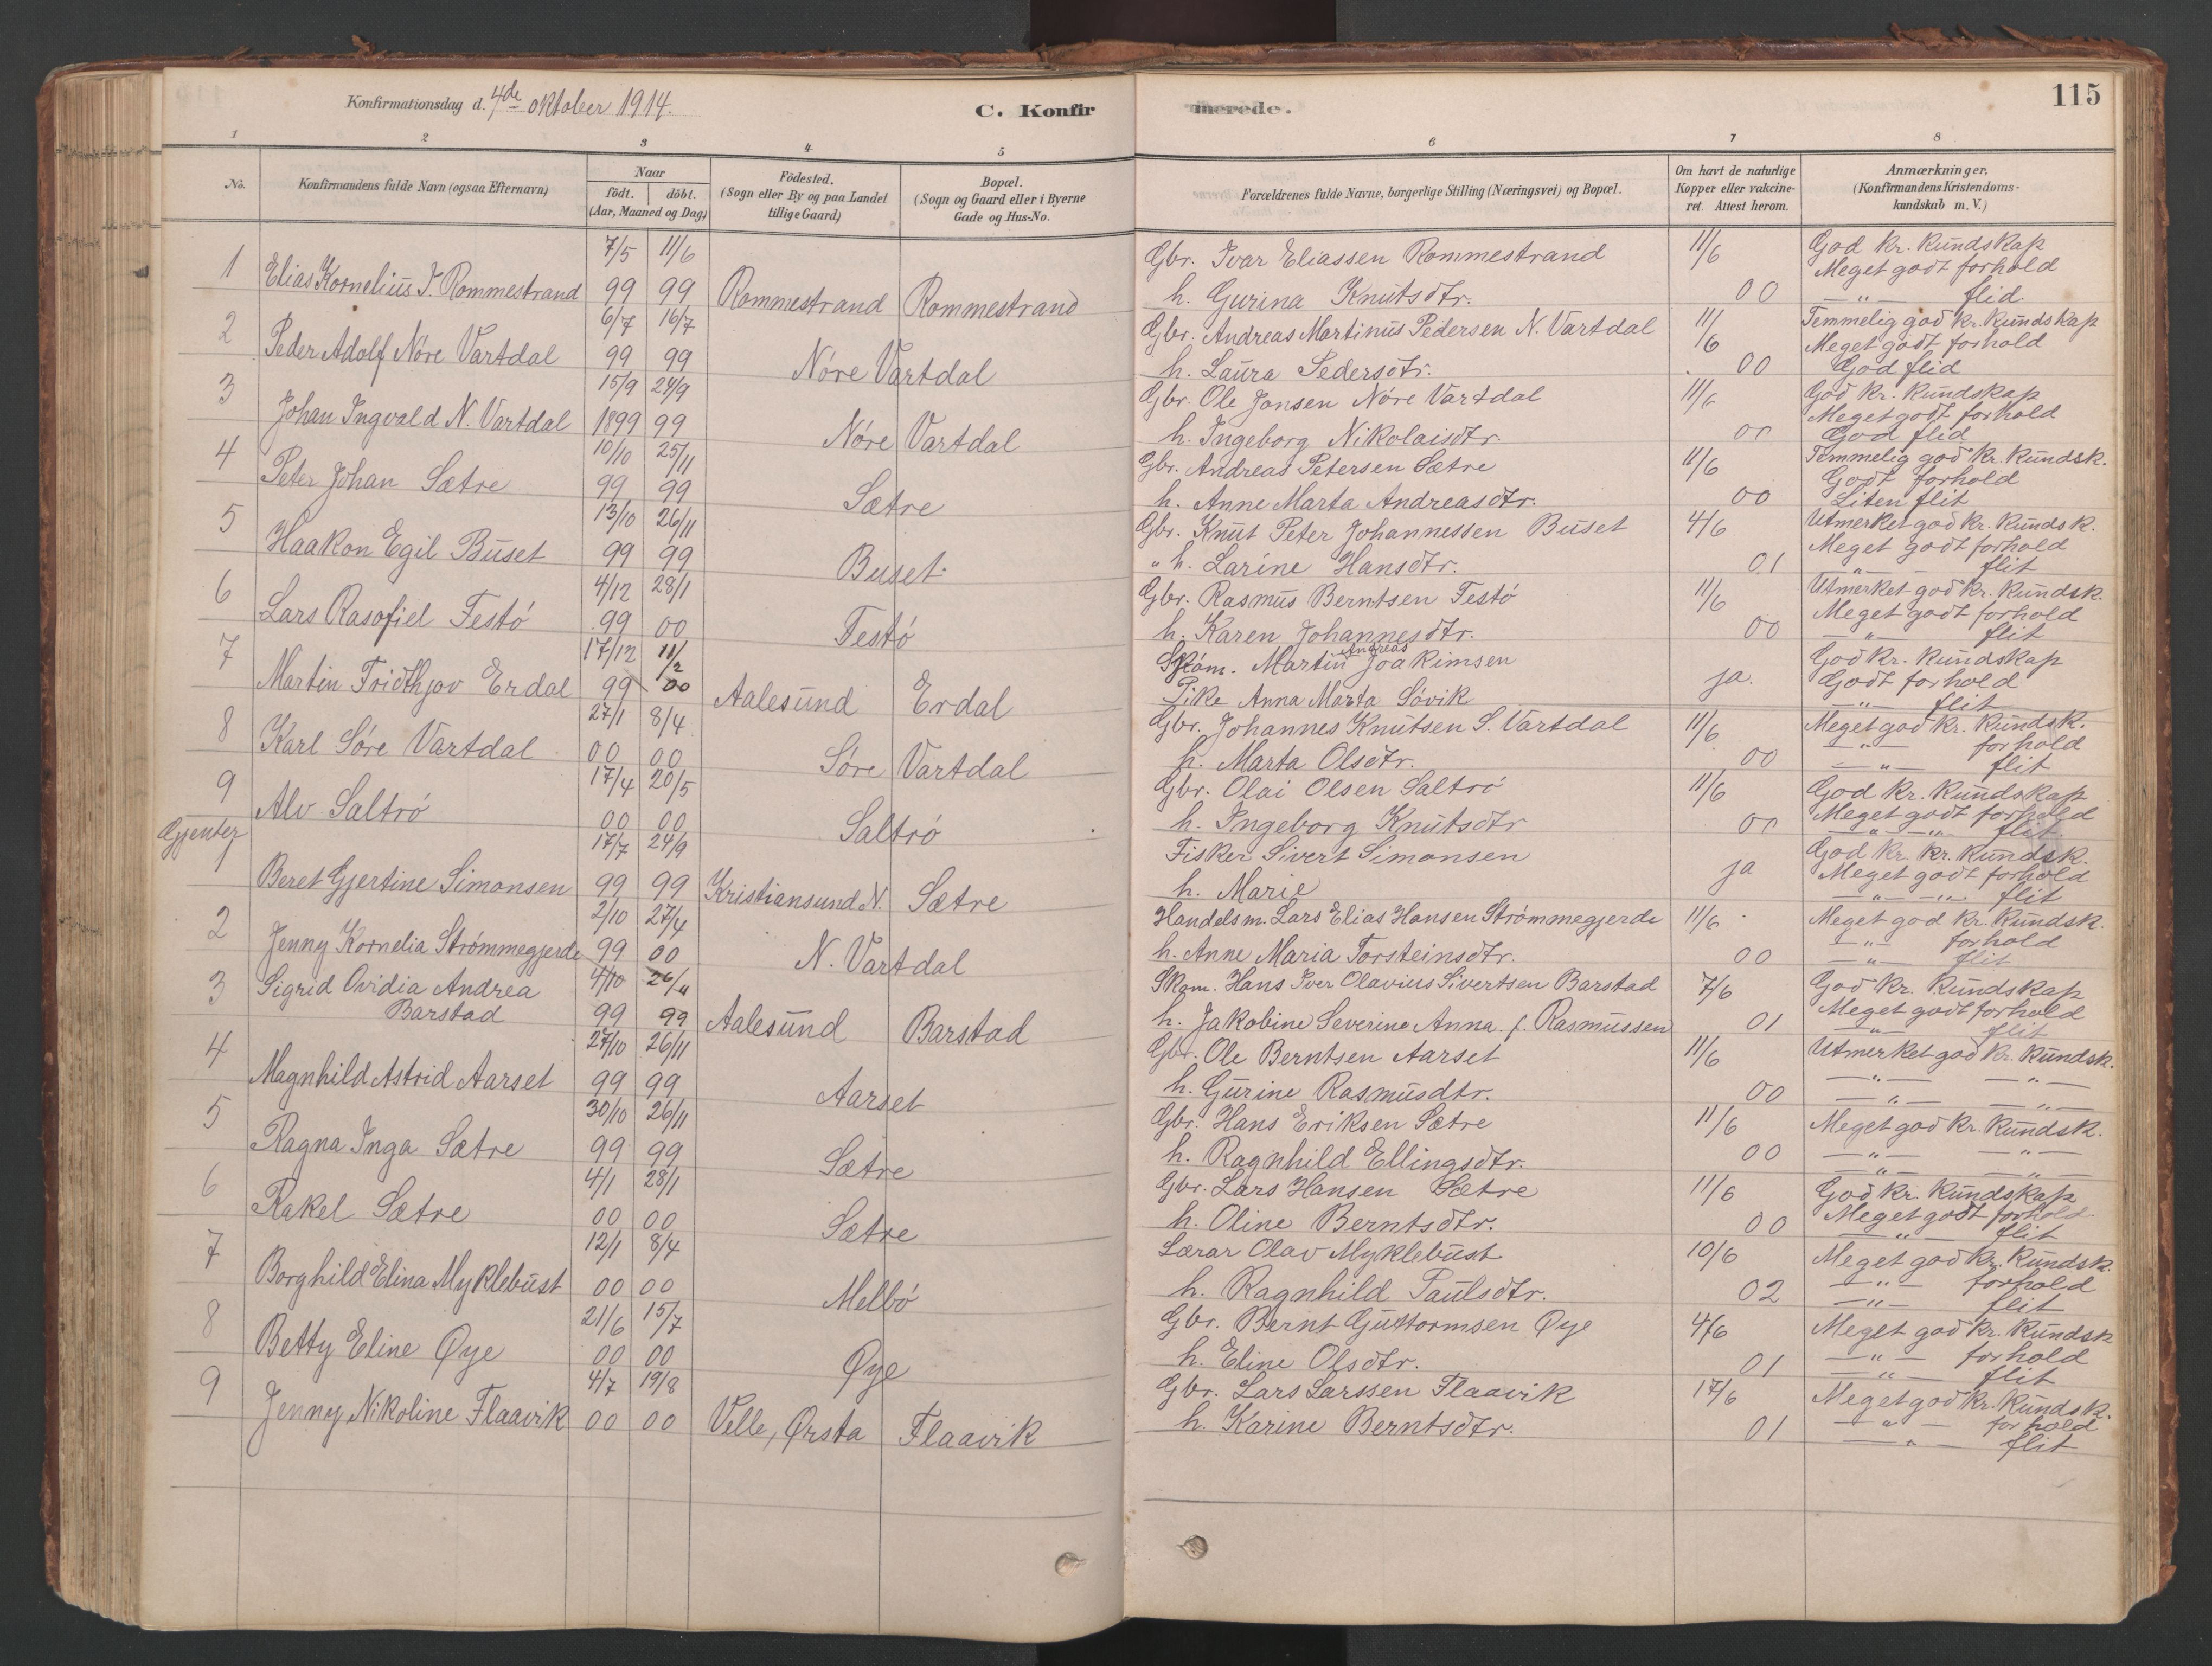 Konfirmationsdag d. 4de oktober 1914.
C. Konfirmerede.
115
1 2 3 4 5 6 7 8
No.
Konfirmandens fulde Navn (ogsaa Efternavn)
Naar
födt. döbt.
(Aar, Maaned og Dag)
Födested.
(Sogn eller By og paa Landet
tillige Gaard)
Bopæl.
(Sogn og Gaard eller i Byerne
Gade og Hus-No.
Forældrenes fulde Navne, borgerlige Stilling (Næringsvei) og Bopæl.
Om havt de naturlige
Kopper eller vakcine-
ret. Attest herom.
Anmærkninger,
(Konfirmandens Kristendoms-
kundskab m. V.)
7/5 11/6 Gbr. Ivar Eliassen Rommestrand 11/6 God kr. kundskap
Meget godt forhold
1 Elias Kornelius I. Rommestrand 99 99 Rommestrand Rommestrand h. Gurina Knutsdtr. 00 —"— flid.
2 6/7 16/7 Gbr. Andreas Martinus Pedersen N. Vartdal 11/6 Temmelig god kr. kundskap
Meget godt forhold
Peder Adolf Nóre Vartdal 99 99 Nóre Vartdal h. Laura Pedersdtr. 00 God flid
3 15/9 24/9 Gbr. Ole Jonsen Nóre Vartdal 11/6 God kr. kundskap
Meget godt forhold
Johan Ingvald N. Vartdal 1899 99 Nóre Vartdal h. Ingeborg Nikolaisdtr. 00 God flid
4 10/10 25/11 Gbr. Andreas Petersen Sætre 11/6 Temmelig god kr. kundsk.
Godt forhold
Peter Johan Sætre 99 99 Sætre h. Anne Marta Andreasdtr. 00 Liten flit
5 13/10 26/11 Gbr. Knut Peter Johannessen Buset 4/6 Utmerket god kr. kundsk.
Meget godt forhold
Haakon Egil Buset 99 99 Buset " h. Larine Hansdtr. 01 —"— flit
6 4/12 28/1 Gbr. Rasmus Berntsen Festó 11/6 Utmerket god kr. kundsk.
Meget godt forhold
Lars Rasofiel Festó 99 00 Festó h. Karen Johannesdtr. 00 —"— flit
7 17/12 11/2 Martin Andreas Joakimsen God kr. kundskap
Godt forhold
Martin Fridthjov Erdal 99 00 Aalesund Erdal Pike Anna Marta Sóvik ja. —"— flit
8 27/1 8/4 Gbr. Johannes Knutsen S. Vartdal 11/6 Meget god kr. kundsk.
—"— forhold
Karl Sóre Vartdal 00 00 Sóre Vartdal h. Marta Olsdtr. 00 —"— flit
9 17/4 20/5 Gbr. Olai Olsen Saltró 11/6 God kr. kundskap
Meget godt forhold
Alv Saltró 00 00 Saltró h. Ingeborg Knutsdtr 00 —"—"— flit
Gjenter
1 17/7 24/9 Fisker Sivert Simonsen ja God kr kr. kundsk.
Meget godt forhold
Beret Gjertine Simonsen 99 99 Kristiansund N. Sætre h. Marie —"—"— flit
2 2/10 27/4 Handelsm. Lars Elias Hansen Strømmegjerde 11/6 Meget god kr. kundsk.
—"— forhold
Jenny Kornelia Strømmegjerde 99 00 N. Vartdal h. Anne Maria Torsteinsdtr. 00 —"— flit
3 Sigrid Ovidia Andrea 4/10 26/11 Skom. Hans Iver Olavius Sivertsen Barstad 7/6 God kr. kundskap
Meget godt forhold
Barstad 99 99 Aalesund Barstad h. Jakobine Severine Anna f. Rasmussen 01 —"— flit
4 27/10 26/11 Gbr. Ole Berntsen Aarset 11/6 Utmerket god kr. kundsk.
—"— —"—
Magnhild Astrid Aarset 99 99 Aarset h. Gurine Rasmusdtr. 00 —"— —"—
5 30/10 26/11 Gbr. Hans Eriksen Sætre 11/6 Meget god kr. kundsk.
—"— —"—
Ragna Inga Sætre 99 99 Sætre h. Ragnhild Ellingsdtr. 00 —"— —"—
6 4/1 28/1 Gbr. Lars Hansen Sætre 11/6 God kr. kundskap
Meget godt forhold
Rakel Sætre 00 00 Sætre h. Oline Berntsdtr. 00 —"— flit
7 12/1 8/4 Lærar Olav Myklebust 10/6 Meget god kr. kundsk.
—"— forhold
Borghild Elina Myklebust 00 00 Melbó h. Ragnhild Paulsdtr. 02 —"— flit
8 21/6 15/7 Gbr. Bernt Guttormsen Øye 4/6 Meget god kr. kundsk
—"— forhold
Betty Eline Øye 00 00 Øye h. Eline Olsdtr. 01 —"— flit
9 4/7 19/8 Gbr. Lars Larssen Flaavik 17/6 Meget god kr. kundsk.
—"— forhold
Jenney Nikoline Flaavik 00 00 Velle, Ørsta Flaavik h. Karine Berntsdtr. 01 —"— flit